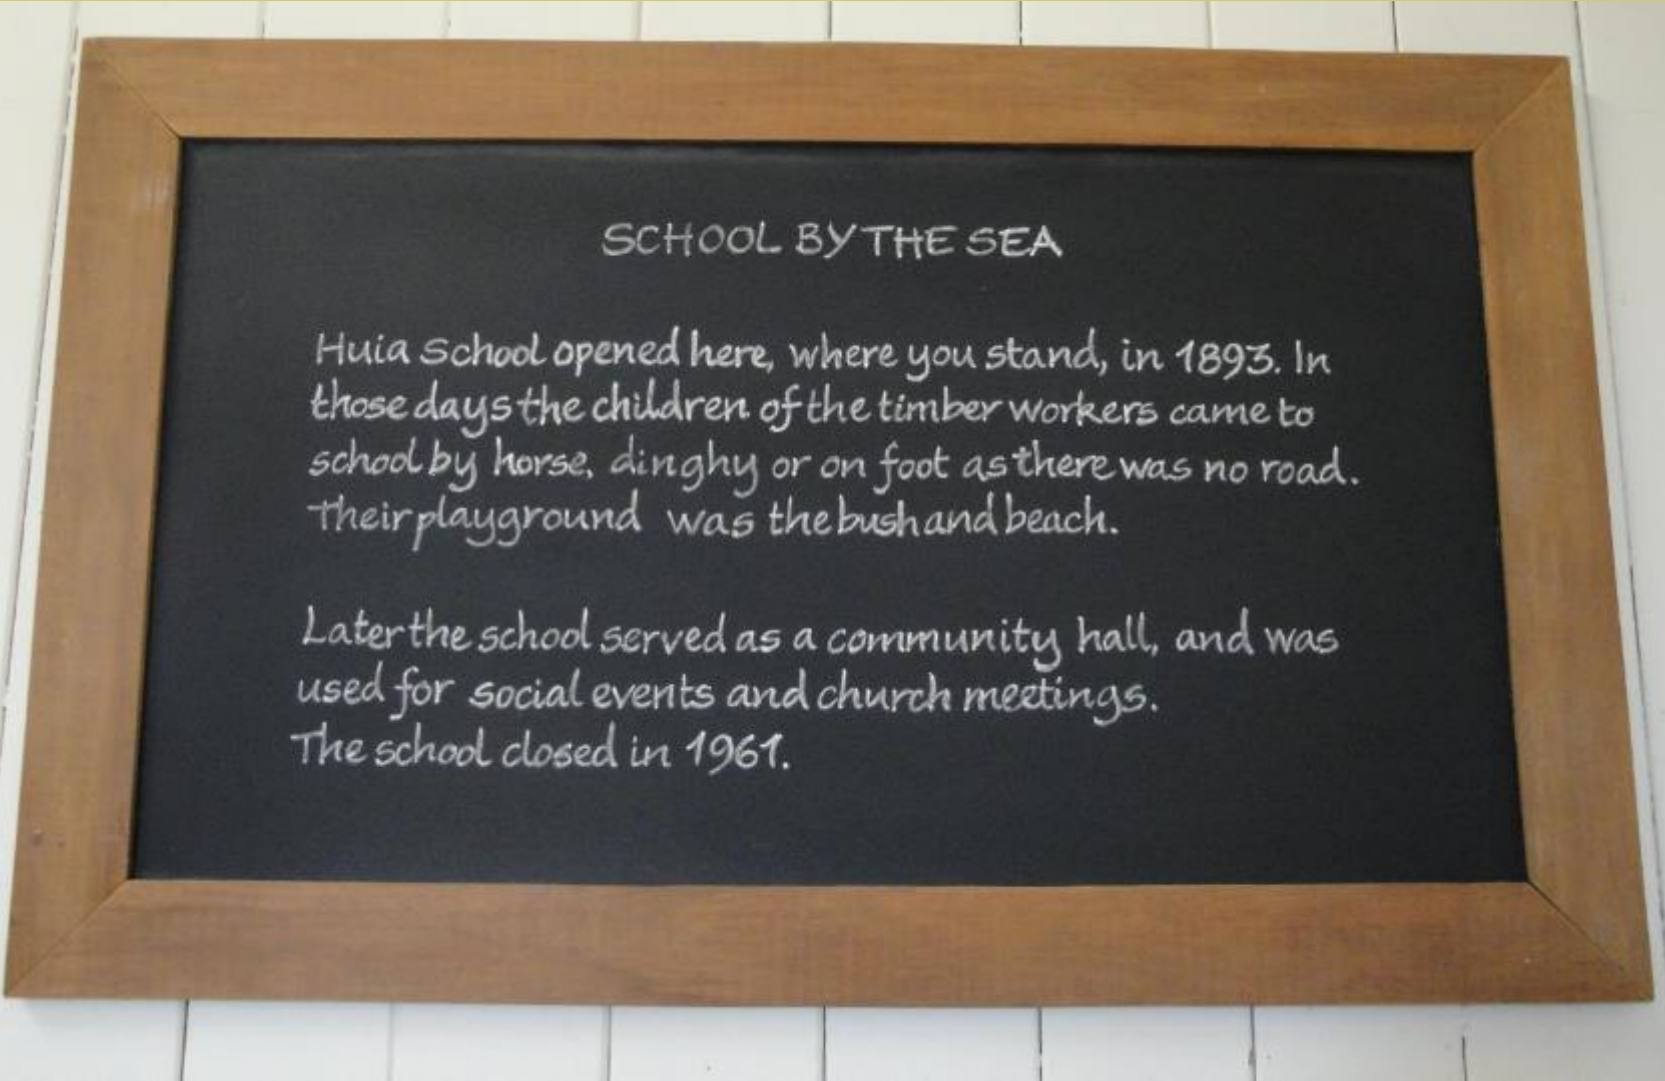 SCHOOL BY THE SEA
Huia School opened here, where you stand, in 1893. In
those days the children of the timber workers came to
school by horse, dinghy or on foot as there was no road.
Their playground was the bush and beach.
Later the school served as a community hall, and was
used for social events and church meetings.
The school closed in 1961.